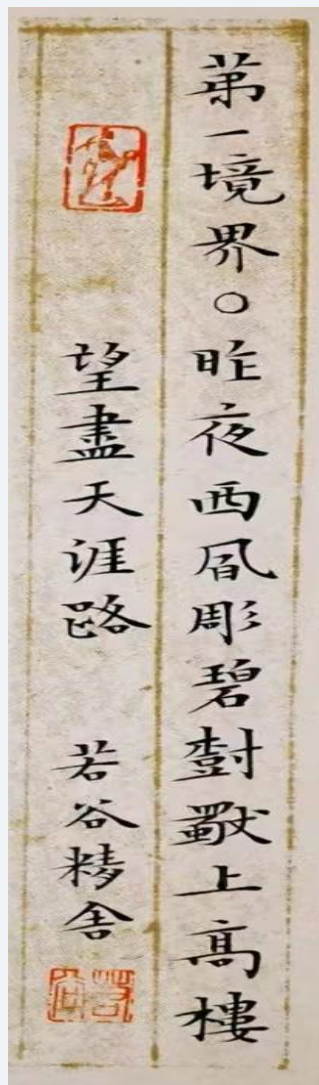 苐一境界○昨夜西凬彫碧樹獨上髙樓
望盡天涯路 若谷精舍